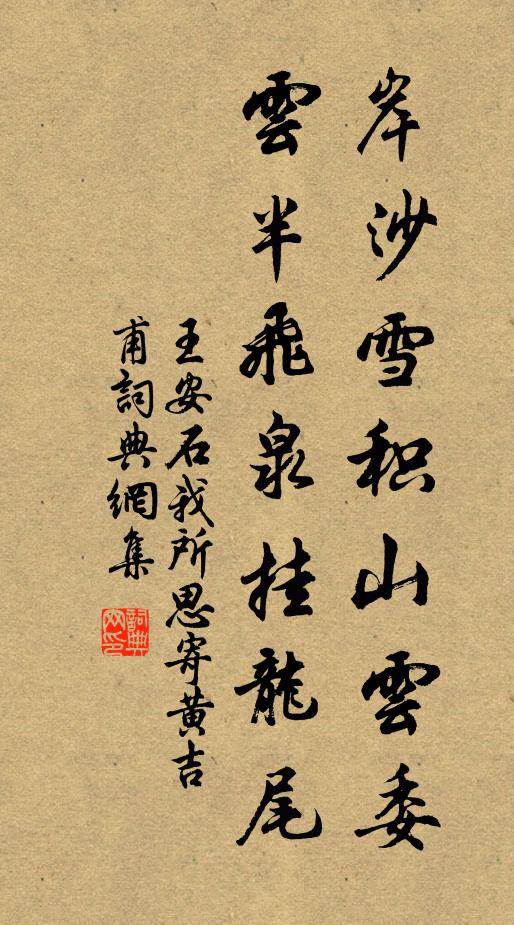 岸沙雪积山雲委
雲半飛泉挂龍尾
王安石我所思寄黄吉
甫詞典網集
詞典网印